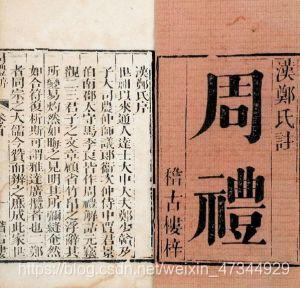 漢鄭氏註
周禮
稽古樓梓
漢鄭氏序
世祖以來通人達士大中大夫鄭少贛及
子大司農仲師議郎衛次仲侍中賈君景
伯南郡太守馬季長皆作周禮解詁元竊
觀二三君子之文章顧省竹帛之浮辭其
所變易灼然如晦之見明其所彌縫奄然
如合符復析斯可謂雅達廣攬者也二鄭
者同宗之大儒今讚而辨之庶成此家世
稽古樓
https://blog.csdn.net/weixin_47344929